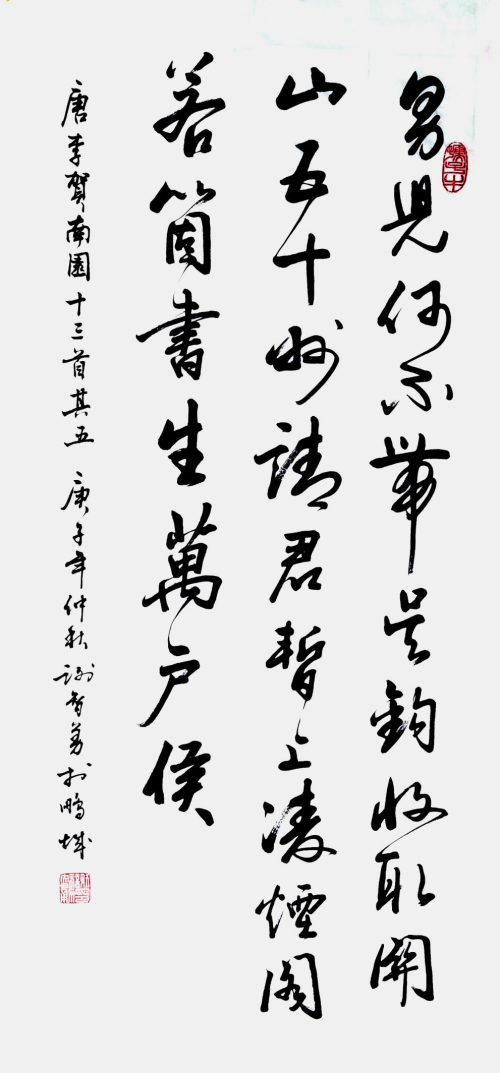 男兒何不帶吳鈎收取關
山五十州請君暫上凌煙閣
若箇書生萬戶侯
唐李賀南園十三首其五 庚子年仲秋謝智勇於鵬城